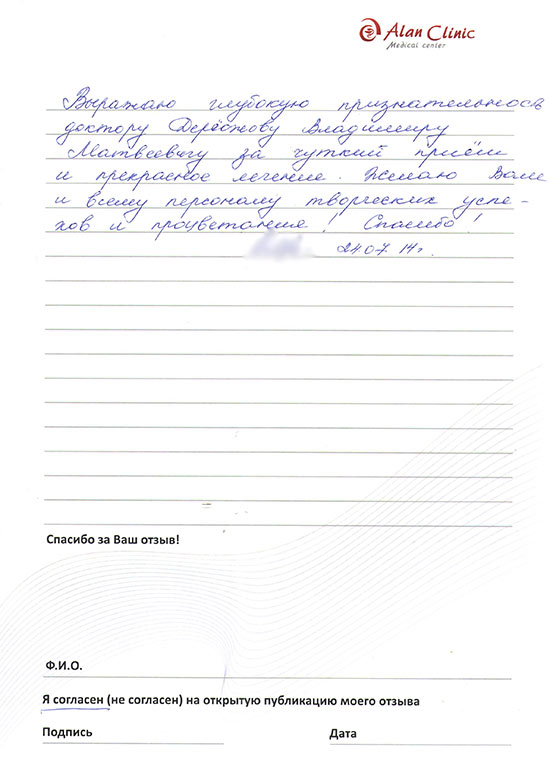 Alan Clinic
Medical center
Выражаю глубокую признательность
доктору Владимиру
Матвеевичу за чуткий приём
и прекрасное лечение. Желаю Вам
и всему персоналу творческих успе-
хов и процветания! Спасибо!
24.07.14г.
Спасибо за Ваш отзыв!
Ф.И.О.
Я согласен (не согласен) на открытую публикацию моего отзыва
Подпись Дата